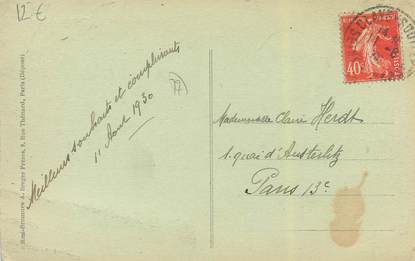 12€
77
Meilleurs souhaits et compliments
11 Août 1930
Mademoiselle Claire Herdt
1. quai d'Austerlitz
Paris 13e
40c
POSTES
A. Breger Frères, 9, Rue Thénard, Paris (Déposé)